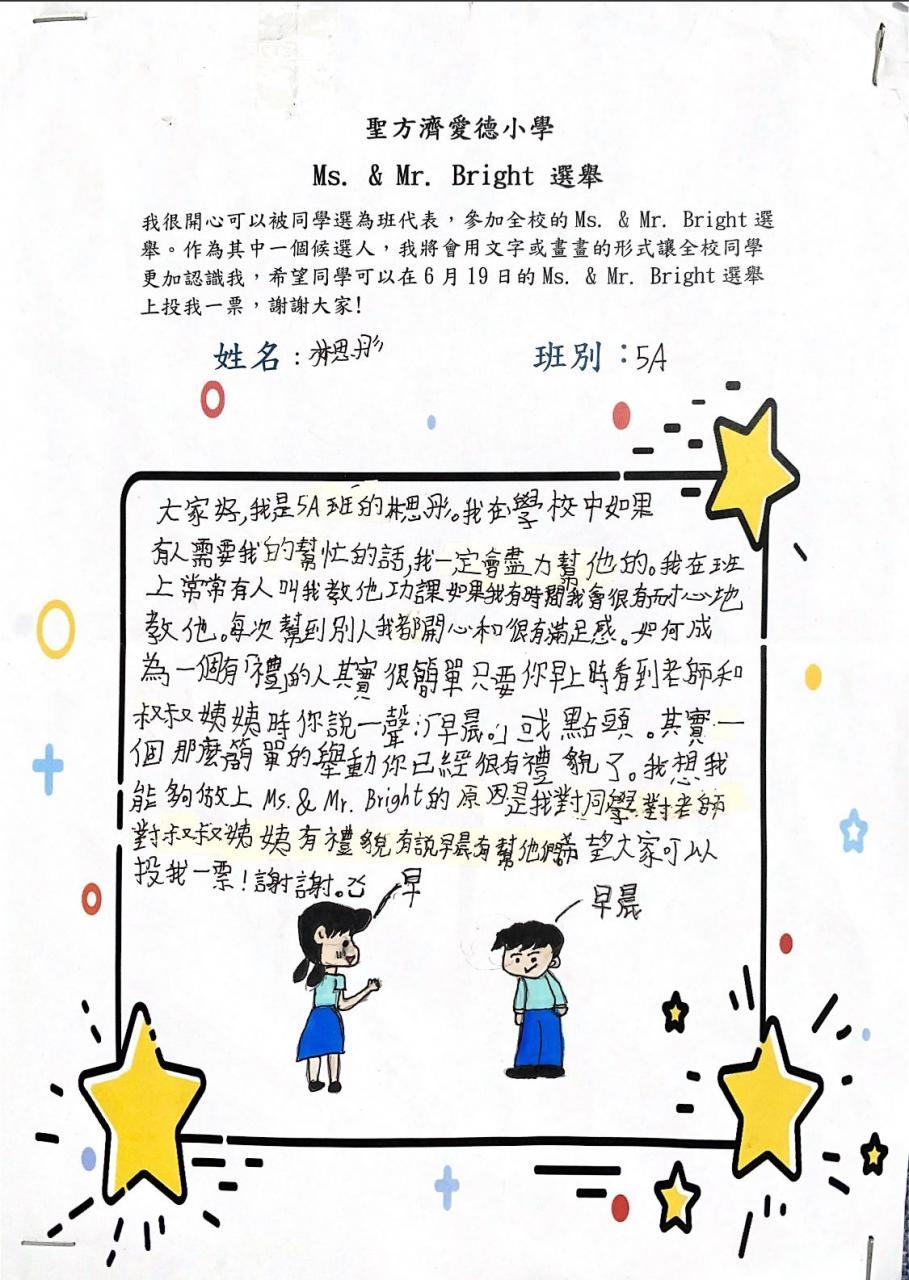 聖方濟愛德小學
Ms. & Mr. Bright 選舉
我很開心可以被同學選為班代表，參加全校的 Ms. & Mr. Bright 選
舉。作為其中一個候選人，我將會用文字或畫畫的形式讓全校同學
更加認識我，希望同學可以在 6 月 19 日的 Ms. & Mr. Bright 選舉
上投我一票，謝謝大家!
姓名：林思彤 班別：5A
大家好,我是5A班的林思彤。我在學校中如果
有人需要我的幫忙的話,我一定會盡力幫他的。我在班
上常常有人叫我教他功課如果我有時間我會很有耐心地
教他。每次幫到別人我都開心和很有滿足感。如何成
為一個有「禮」的人其實很簡單只要你早上時看到老師和
叔叔姨姨時你說一聲:「早晨。」或點頭。其實一
個那麼簡單的舉動你已經很有禮貌了。我想我
能夠做上Ms.& Mr. Bright的原因是我對同學對老師
對叔叔姨姨有禮貌有說早晨有幫他們希望大家可以
投我一票!謝謝。
早
早晨